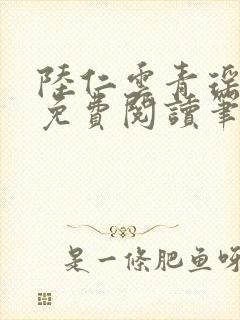 陸仁雲青瑤
免費閱讀筆
是一條肥鱼呀